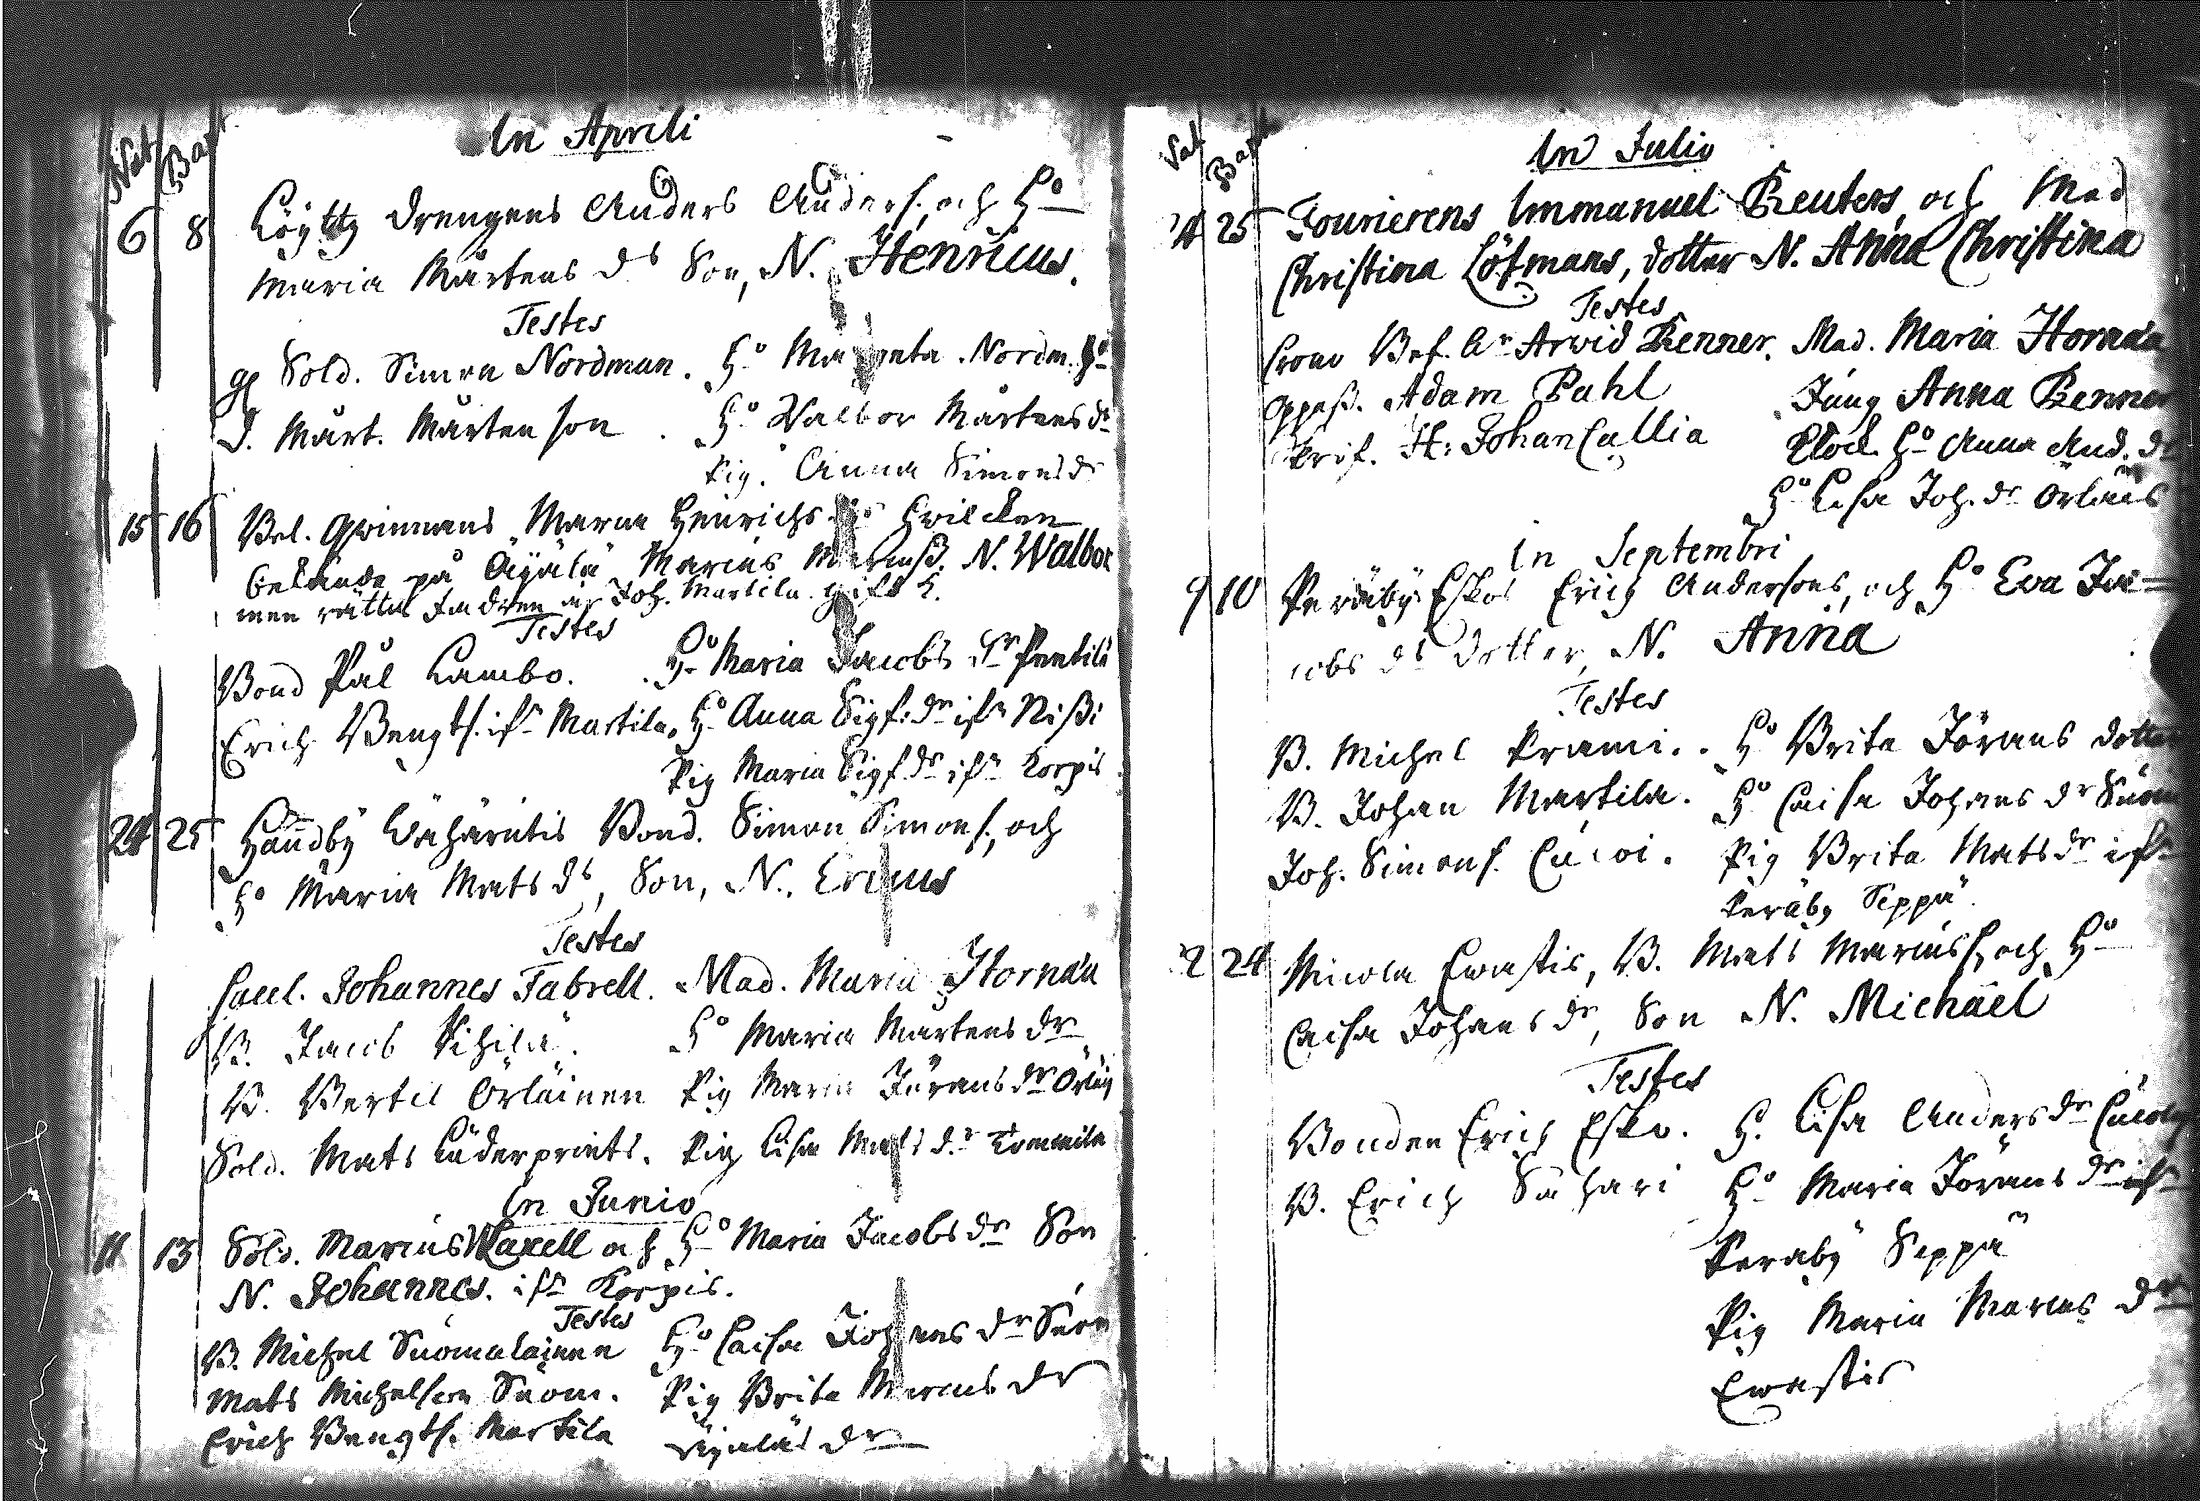 Nat Bapt
In Aprili
6 8 Löytty Drengens Anders Anders. och Ho
Maria Mårtens ds Son, N. Henricus.
Testes
Sold. Simon Nordman. Ho Margeta Nordm.
D. Mårt. Mårtenson. Ho Walbor Mårtens dr
Pig. Anna Simons dr
15 16 Maria Henrichs hvilcken
på Äijälä Marcus N. Walbor
men rätta fadren är Joh. Martila. gift k.
Testes
Bond Pål Lambo. Ho Maria Jacobs dr Pentilä
Erich Bengts. ifr Martila. Ho Anna Sigf. dr ifr Nissi
Pig Maria Sigf dr ifr Korpis
24 25 Bond. Simon Simons. och
Ho Maria Mats ds, Son, N. Ericus
Testes
Johannes Fabrell. Mad. Maria Hornæa
B. Jacob Pihila. Ho Maria Mårtens dr
B. Bertil Örläinen Pig Maria Jörans dr Örläin
Sold. Mats Pig Lisa Mats dr
In Junio
11 13 Sold. Marcus Waxell och Ho Maria Jacobs dr Son
N. Johannes. ifr Korpis.
Testes
B. Michel Suomalainen Ho Caisa Johans dr Suom
Mats Michelson Suom. Pig Brita Marcus dr
Erich Bengts. Martila Äijäläs dr
Nat Bapt
In Julio
24 25 Fourierens Immanuel Reuters, och Mad
Christina Löfmans, dotter N. Anna Christina
Testes
Arvid Renner. Mad. Maria Hornæa
Adam Pahl Jung Anna Renner
H: Johan Callia Klock. Ho Anna And. dr
Ho Lisa Joh. dr Örläis
In Septembri
9 10 Peräby Eskos Erich Andersons, och Ho Eva Ja=
cobs ds Dotter, N. Anna
Testes
B. Michel Prami. Ho Brita Jörans dotter
B. Johan Martila. Ho Caisa Johans dr Suom
Joh. Simons. Pig Brita Mats dr ifr
Peräby Seppä
24 Nicola Evastis, B. Mats Marcus. och Ho
Caisa Johans dr, Son N. Michaël
Testes
Bonden Erich Esko. H. Lisa Anders dr
B. Erich Sahari Ho Maria Jörans dr ifr
Peräby Seppä
Pig Maria Marcus dr
Evastis